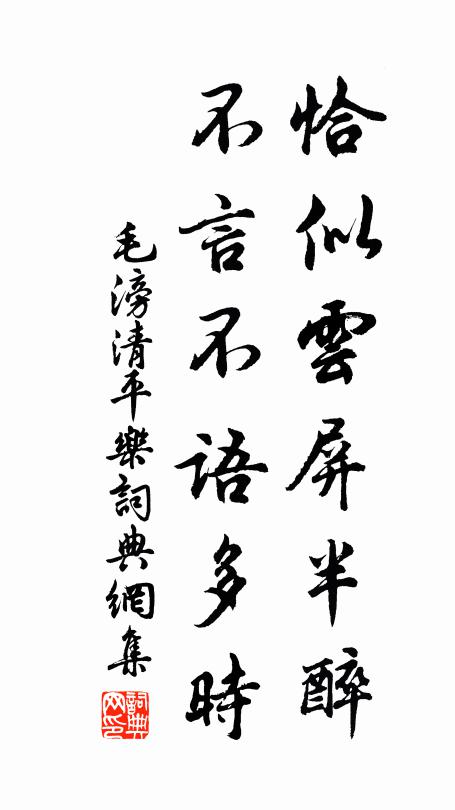 恰似雲屏半醉
不言不語多時
毛滂清平樂詞典網集
詞典网印